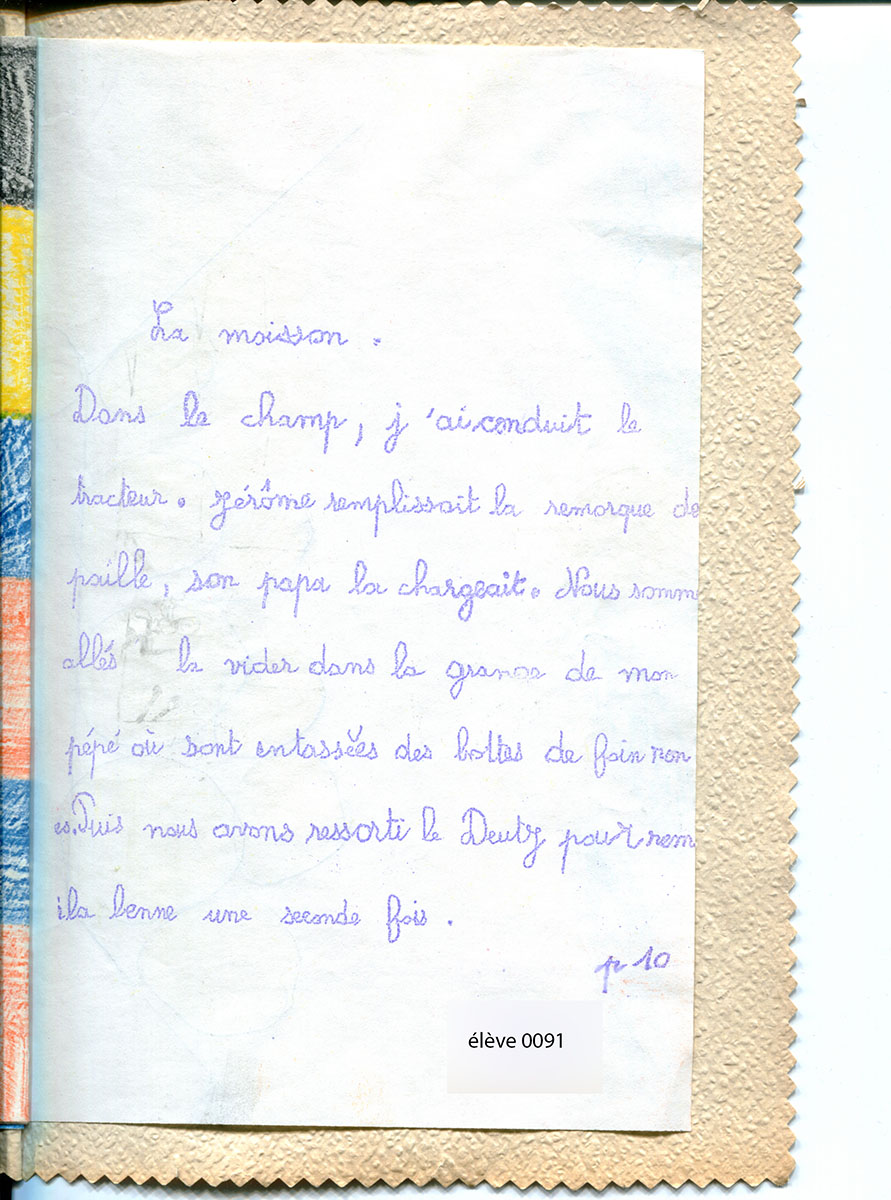 La moisson.
Dans le champ, j'ai conduit le
tracteur. Jérôme remplissait la remorque de
paille, son papa la chargeait. Nous somm
allés la vider dans la grange de mon
pépé où sont entassées des bottes de foin ron
es. Puis nous avons ressorti le Deutz pour rem
i la benne une seconde fois.
p 10
élève 0091